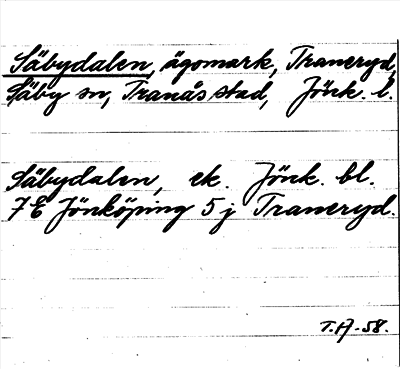 Säbydalen, ägomark, Traneryd,
Säby sn, Tranås stad, Jönk. l.
Säbydalen, ek. Jönk. bl.
7 E Jönköping 5 j Traneryd.
T.A-58.